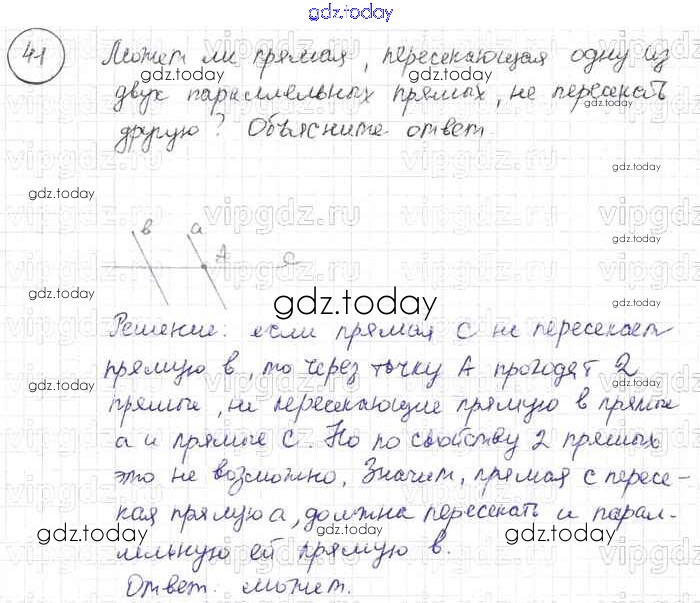 gdz.today
41 Может ли прямая, пересекающая одну из
gdz.today
двух параллельных прямых, не пересекать
другую? Объясните ответ.
gdz.today
gdz.today
vipgdz.ru vipgdz.ru
в а А С
gdz.today
gdz.today
gdz.today
gdz.today
Решение: если прямая С не пересекает
прямую в, то через точку А проходят 2
gdz.today
gdz.today
прямые, не пересекающие прямую в прямые
а и прямые С. Но по свойству 2 прямых
gdz.today
это не возможно. Значит, прямая с пересе-
кая прямую а, должна пересекать и парал-
gdz.today
gdz.today
лельную ей прямую в.
Ответ: может.
gdz.today